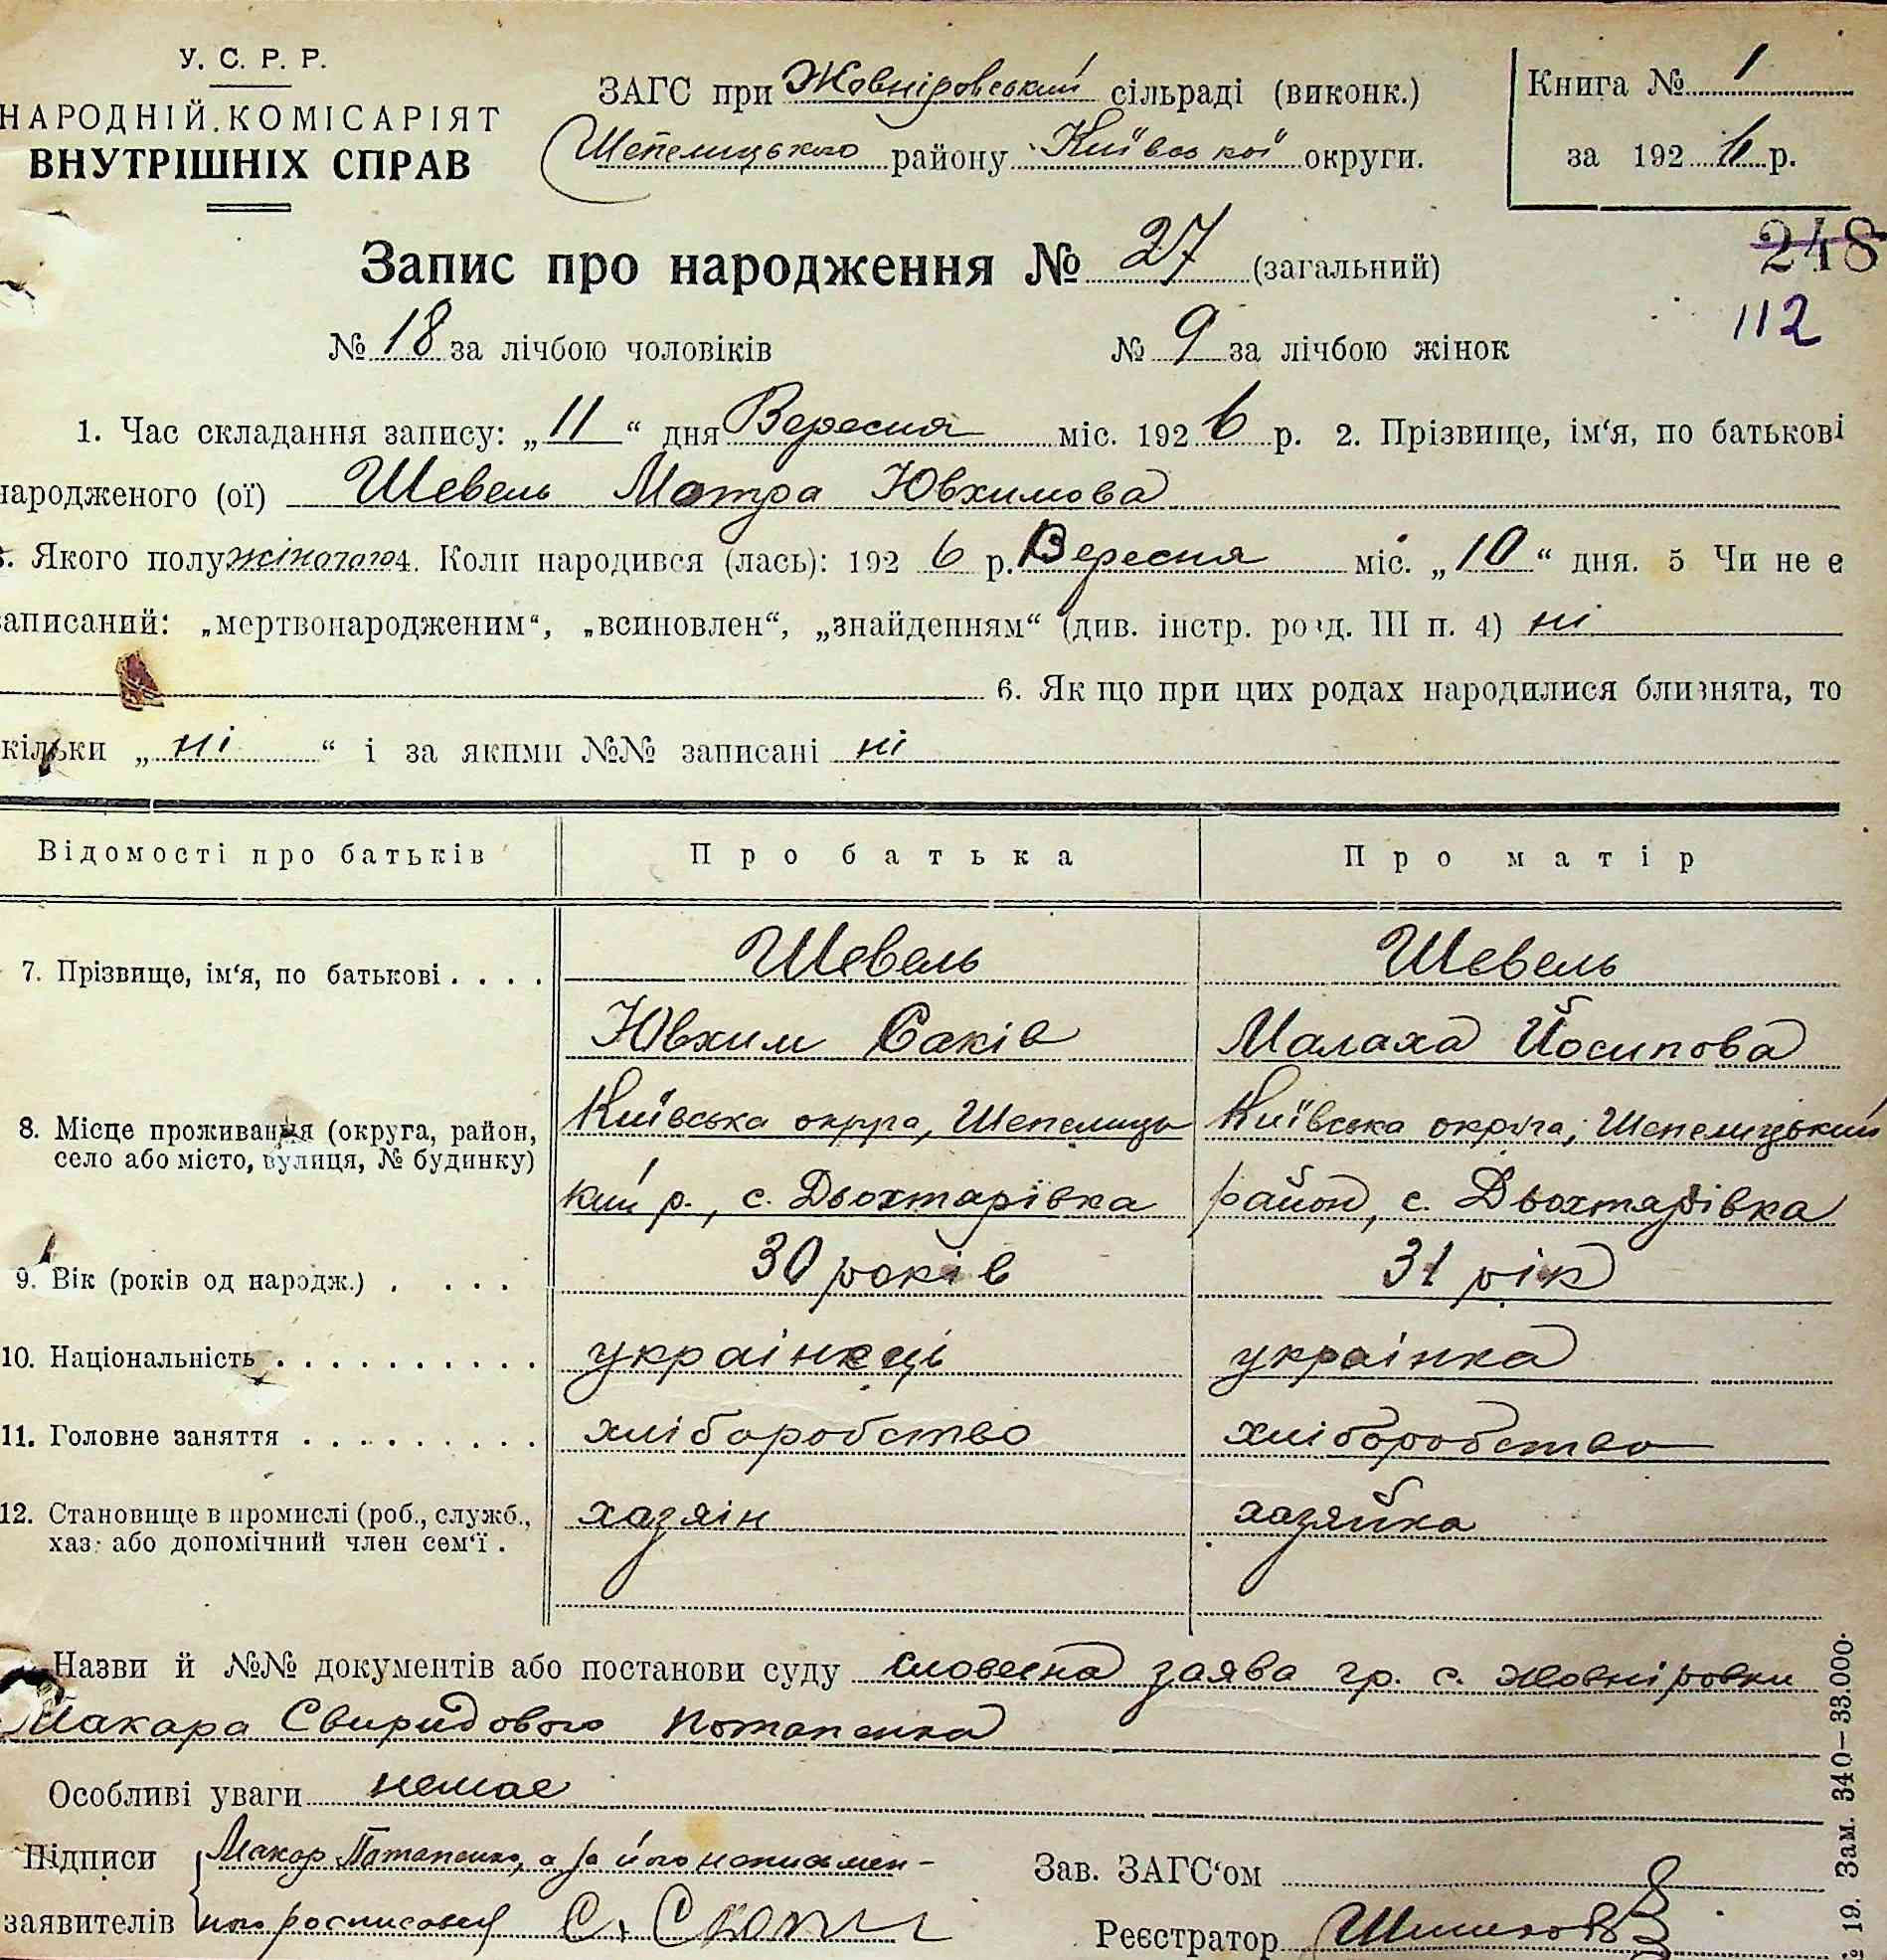 У. С. Р. Р.
НАРОДНІЙ КОМІСАРІЯТ
ВНУТРІШНІХ СПРАВ
ЗАГС при Жовніровський сільраді (виконк.)
Шепелицького району Київської округи.
Книга № 1
за 1926 р.
Запис про народження № 27 (загальний)
248
112
№ 18 за лічбою чоловіків № 9 за лічбою жінок
1. Час складання запису: „11“ дня Вересня міс. 1926 р. 2. Прізвище, ім‘я, по батькові
народженого (ої) Шевель Мотра Ювхимова
3. Якого полу жіночого 4. Коли народився (лась): 1926 р. Вересня міс. „10“ дня. 5 Чи не є
записаний: „мертвонародженим“, „всиновлен“, „знайденням“ (див. інстр. розд. III п. 4) ні
6. Як що при цих родах народилися близнята, то
кільки „ні“ і за якими №№ записані ні
Відомості про батьків Про батька Про матір
7. Прізвище, ім‘я, по батькові . . . . Шевель Шевель
Ювхим Саків Малаха Йосипова
8. Місце проживання (округа, район, село або місто, вулиця, № будинку) Київська округа, Шепелиць Київська округа, Шепелицький
кий р., с. Дьохтарівка район, с. Дьохтярівка
9. Вік (років од народж.) . . . . 30 років 31 рік
10. Національність . . . . . . . . . . українець українка
11. Головне заняття . . . . . . . . . хліборобство хліборобство
12. Становище в промислі (роб., служб., хаз. або допомічний член сем‘ї . хазяін хазяйка
Назви й №№ документів або постанови суду словесна заява гр. с. Жовніровки
Макара Свиридового Потапенка
Особливі уваги немає
Підписи Макар Потапенко, а за його неписмен-
заявителів ного росписався С.
Зав. ЗАГС‘ом
Реєстратор
19. Зам. 340—33.000.